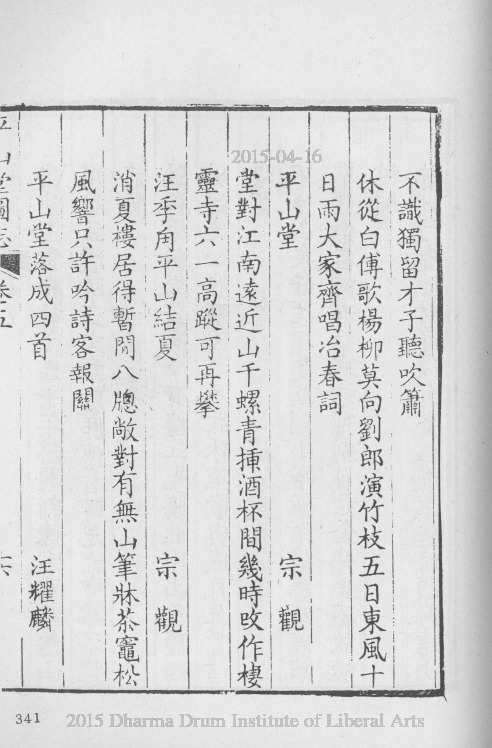 不識獨留才子聽吹簫
休從白傅歌楊柳莫向劉郎演竹枝五日東風十
日雨大家齊唱冶春詞
平山堂 宗觀
堂對江南遠近山千螺青揷酒杯間幾時改作棲
靈寺六一高蹤可再攀
汪季角平山結夏 宗觀
消夏樓居得暫閒八牕敞對有無山筆牀茶竈松
風響只許吟詩客報關
平山堂落成四首 汪耀麟
平山堂圖志 卷五
2015-04-16
341
2015 Dharma Drum Institute of Liberal Arts